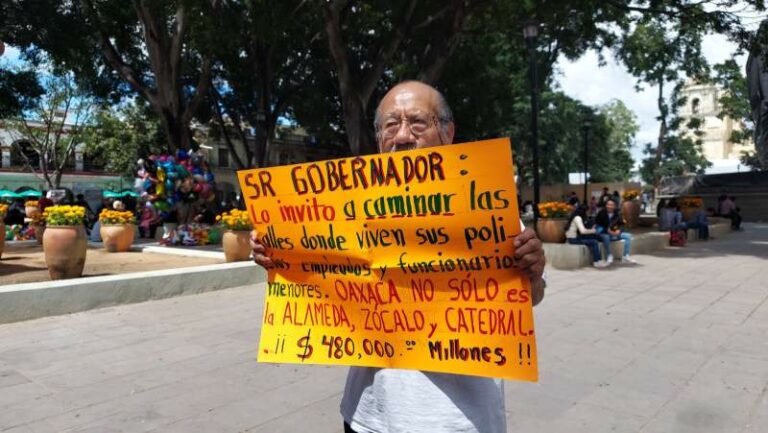 SR GOBERNADOR:
Lo invito a caminar las
calles donde viven sus poli-
empleados y funcionarios
menores. OAXACA NO SÓLO es
la ALAMEDA, ZÓCALO y CATEDRAL.
¡¡ $ 480,000.00 Millones !!